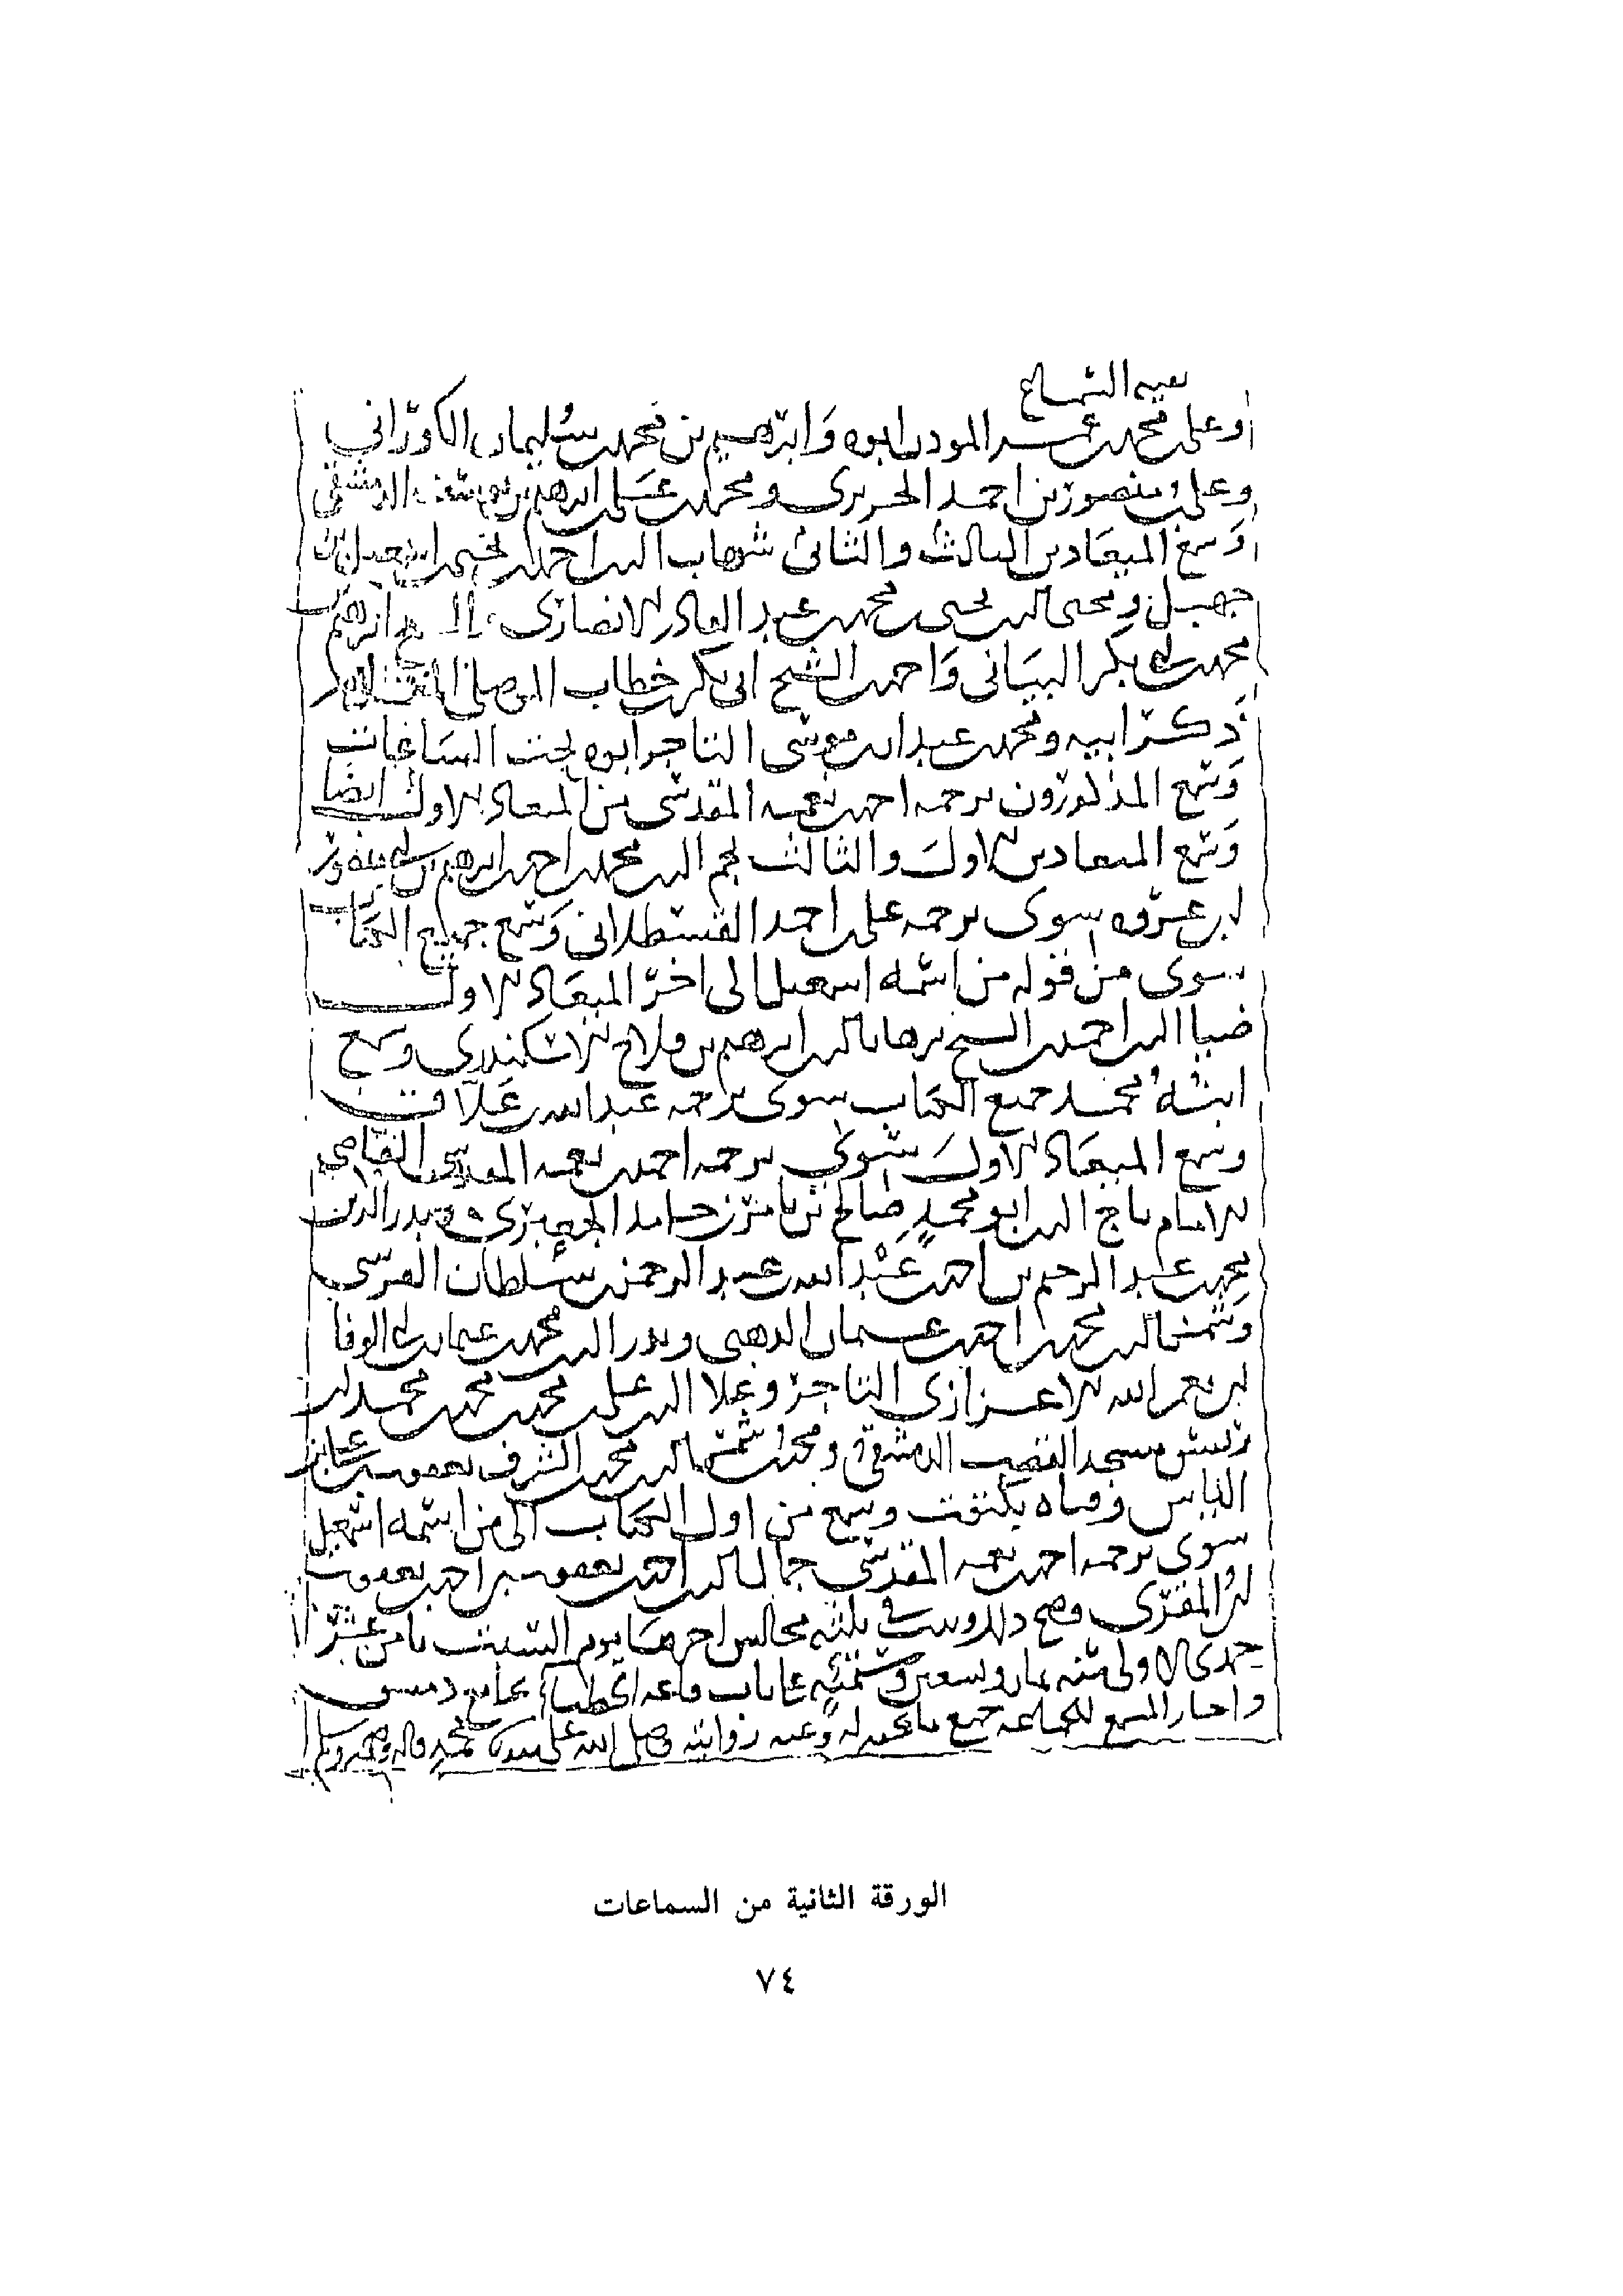 بقية السماع
وعلي بن محمد بن عمر المؤذن ابوه وابرهيم بن محمد بن سليمان الكوراني
وعلي بن منصور بن احمد الحريري ومحمد بن علي بن ابرهيم بن الدمشقي
وسمع الميعادين الثالث والثاني شهاب الدين احمد بن يحيى بن اسمعيل بن
جهبل ومحيي الدين يحيى بن محمد بن عبد القادر الانصاري ابرهيم بن
محمد بن ابي بكر البياني واحمد بن الشيخ ابي بكر بن خطاب الموصلي
ذكر ابيه ومحمد بن عبد الله بن موسى التاجر ابوه تحت الساعات
وسمع المذكورون ترجمة احمد بن نعمة المقدسي من الميعاد الاول ايضا
وسمع الميعادين الاول والثالث نجم الدين محمد بن احمد بن ابرهيم بن ابي منصور
ابن عروه سوى ترجمة علي بن احمد القسطلاني وسمع جميع الكتاب
سوى من قوله من اسمه اسمعيل الى اخر الميعاد الاول
ضيا الدين احمد بن الشيخ برهان الدين ابرهيم بن فلاح الاسكندري وسمع
ابنه محمد جميع الكتاب سوى ترجمة عبد الله بن علاق
وسمع الميعاد الاول سوى ترجمة احمد بن نعمة المقدسي القاضي
الامام تاج الدين ابو محمد صالح بن ثامر بن حامد الجعبري وبدر الدين
محمد بن عبد الرحيم بن احمد بن عبد الله بن عبد الرحمن بن سلطان القرشي
وشمس الدين محمد بن احمد بن عثمان الذهبي وبدر الدين محمد بن عثمان بن ابي الوفا
بن نعم الله الاعزازي التاجر وعلا الدين علي بن محمد بن محمد بن محمد ابن
رئيس مسجد القصب الدمشقي ومحمد بن شمس الدين محمد بن الشرف يعقوب بن عابر
الناس وفتاه بكتوت وسمع من اول الكتاب الى من اسمه اسمعيل
سوى ترجمة احمد بن نعمة المقدسي جمال الدين احمد بن يعقوب بن احمد بن يعقوب
ابن المقرى وصح ذلك وثبت في ثلثة مجالس اخرها يوم السبت ثامن عشر
جمدى الاولى سنة ثمان وتسعين وستمئة بباب قاعة الخطابة بجامع دمشق
واجاز المسمع للجماعة جميع ما يجوز له وعنه روايته وصلى الله على سيدنا محمد واله وصحبه وسلم
الورقة الثانية من السماعات
٧٤